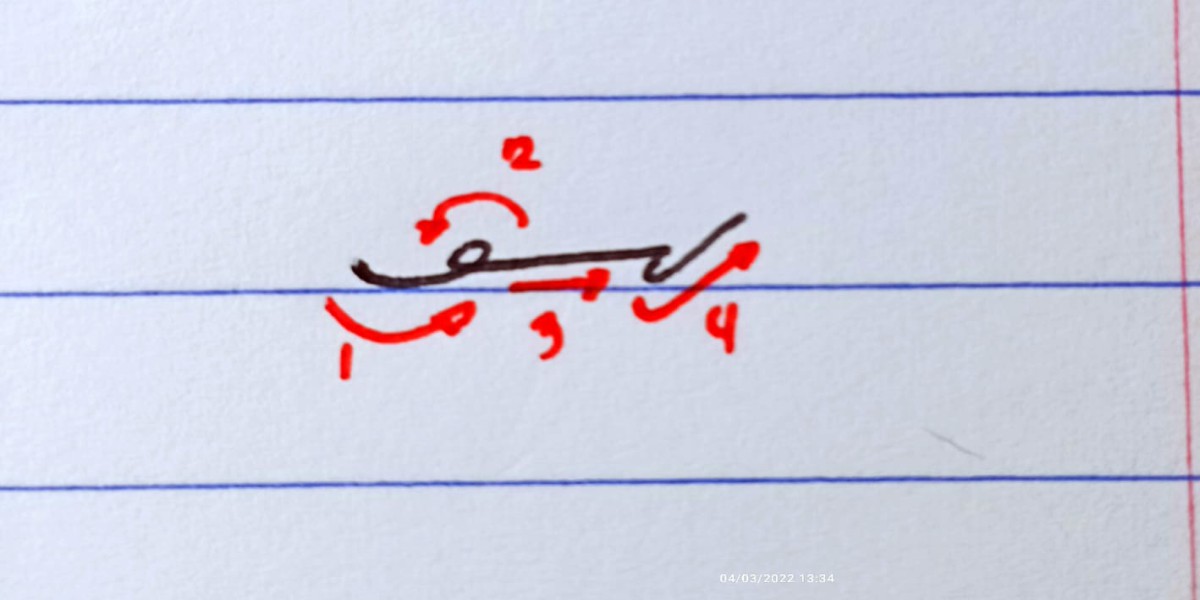 2
1
3
4
04/03/2022 13:34